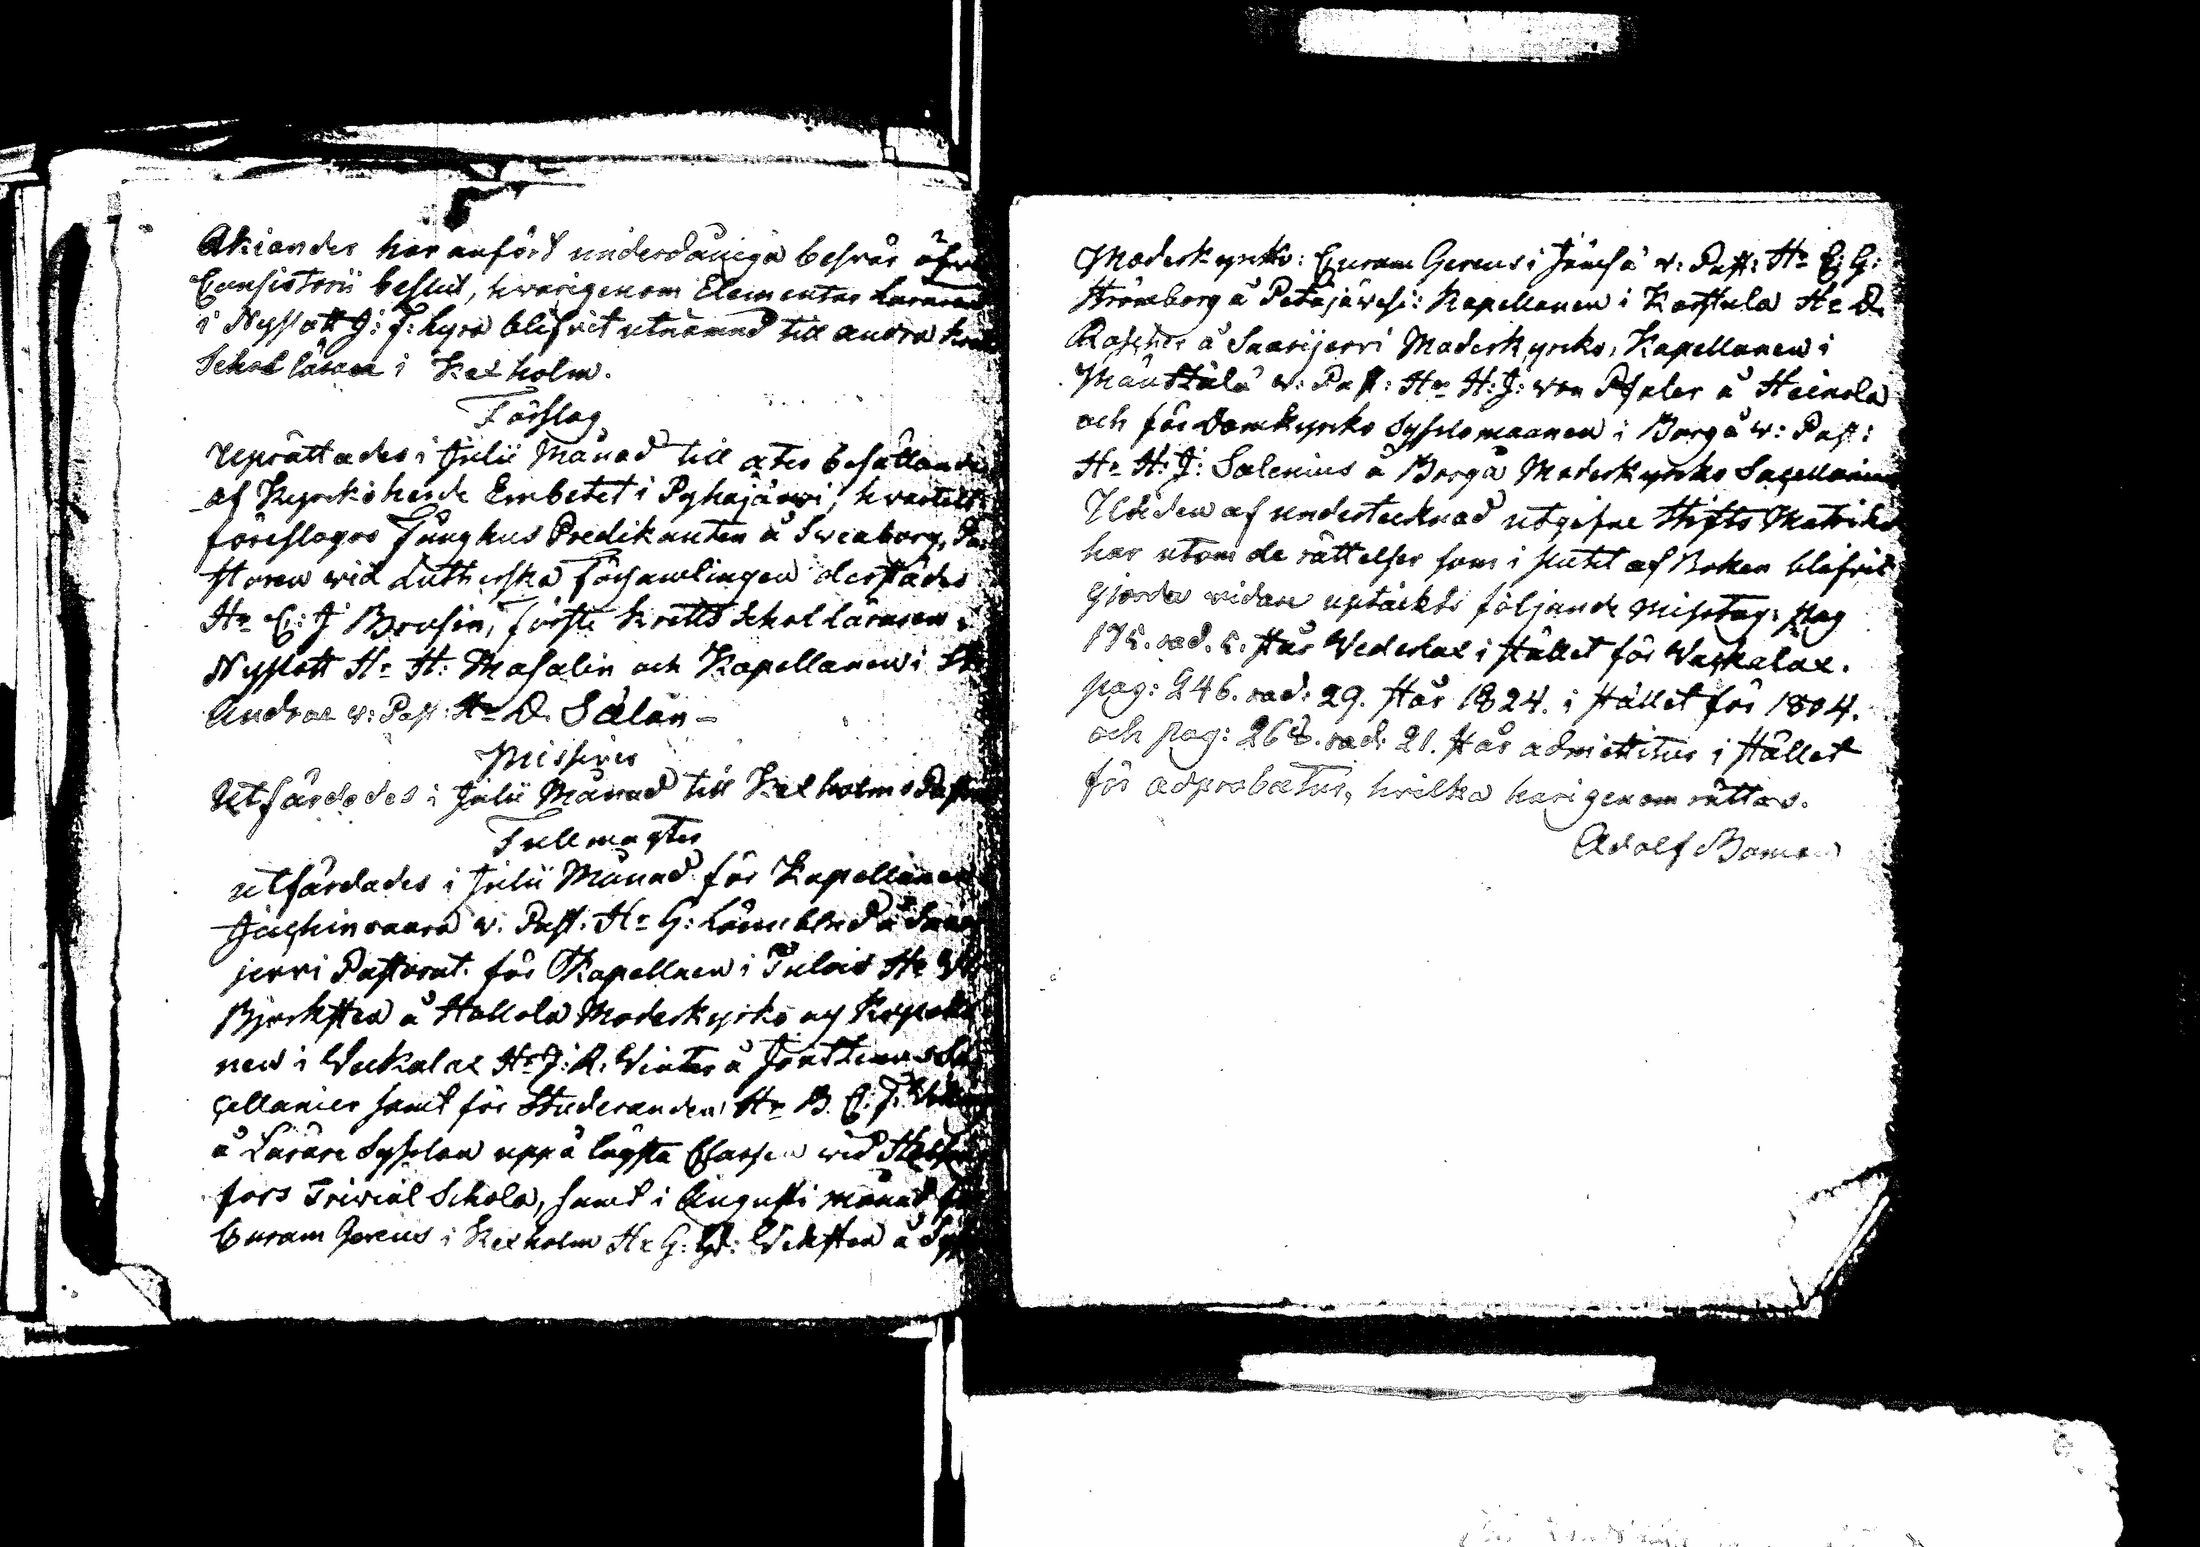 Akiander har anfört underdåniga besvär öfver
Consistorii beslut, hvarigenom Elementar Läraren
i Nyslott J: F: Lyra blifvit utnämnd till andra Krets
Schol lärare i Kexholm.
Förslag
Uprättades i Julii Månad till åter besättande
af Kyrkoherde Embetet i Pyhäjärwi, hvartill
föreslogos Fånghus Predikanten å Sweaborg, Pa-
storen wid Lutherska Församlingen derstädes
Hr C: J Brusin, förste Krets Schol Läraren i
Nyslott Hr H: Masalin och Kapellanen i St
Andrae v: Past: Hr D. Salán -
Missiver
Utfärdades i Julii Månad till Kexholms
Fullmagter
utfärdades i Julii Månad för Kapellanen
v. Past. Hr G: Lönnblad å Saari-
jervi Pastorat. för Kapellnen i Tulois Hr
Björksten å Hollola Moderkyrko och Kapella-
nen i Weckalax Hr J: R. Winter å
cellanier samt för Studeranden Hr B. C. F.
å Lärare Sysslan uppå lägsta Classen wid Helsing-
fors Trivial Schola, samt i Augusti månad för
Curam Gerens i Kexholm Hr G: W: Wiksten å
Moderkyrko: Curam Gerens i Jämsä v: Past: Hr C: G:
Strömborg å Petäjäwesi: Kapellanen i Karstula Hr D.
å Saarijerri Moderkyrko, Kapellanen i
Mänttälä v: Past: Hr H: J: von Pfaler å Heinola
och för Domkyrko Sysslomannen i Borgå v: Past:
Hr H: J: Salenius å Borgå Moderkyrko Sacellanie
Uti den af undertecknad utgifne Stifts Matrikel
har utom de rättelser som i slutet af Boken blifvit
gjorda widare uptäckts följande misstag: pag
175. rad. 5. står Wederlax i stället för Weckalax.
pag: 246. rad: 29. står 1824. i stället för 1804.
och pag: 268. rad: 21. står admittitur i stället
för adprobatur, hvilka härigenom rättas.
Adolf